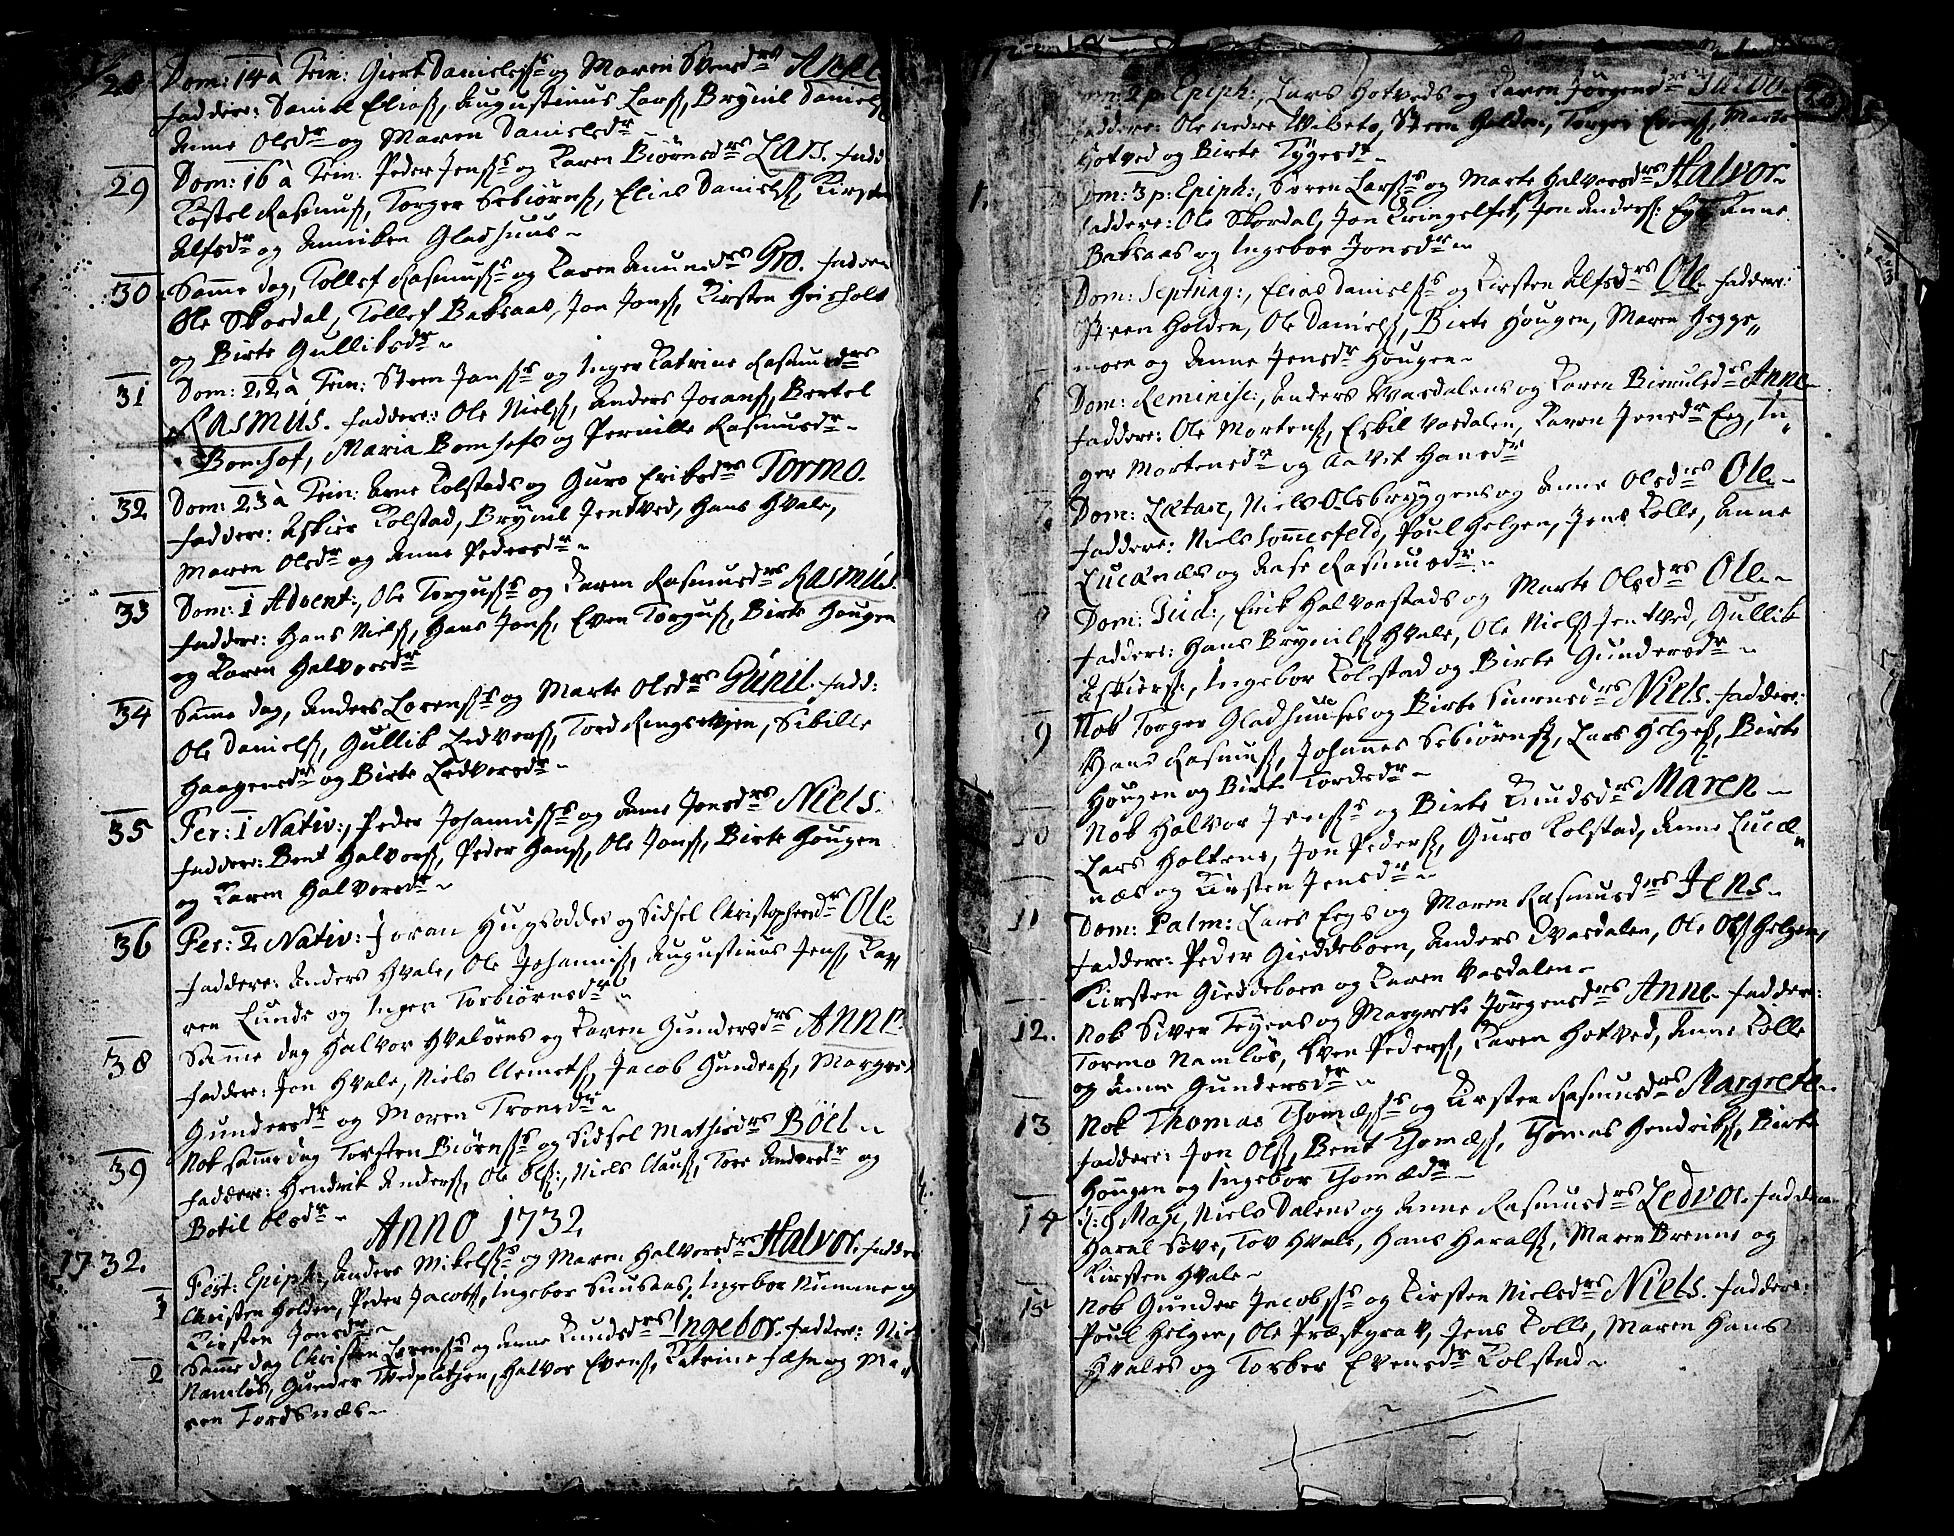 28 Dom: 14 à Trin: Giert Danielss: og Maren Svensdrs Anne
faddere: Daniel Elias, Augustinus Lars, Brynil Daniels
Anne Olsdr og Maren Danielsdr
29 Dom: 16 à Trin: Peder Jens og Karen Biörnsdrs Lars. fadd
Rasmus, Torger Sebiörns, Elias Daniels, Kirsten
Alfsdr og Anniken Gladhuus
30 Samme dag, Tollef Rasmus og Karen Amunsdrs Gro. fadder
Ole Skordal, Tollef Baksaas, Jon Jons, Kirsten Heisholt
og Birte Gulliksdr
31 Dom: 22 à Trin: Steen Jans og Inger Katrine Rasmusdrs
Rasmus. faddere: Ole Niels, Anders Jorans, Bertel
Bomhof, Maria Bomhofs og Pernille Rasmusdr
32 Dom: 23 à Trin: Arne Kolstads og Guro Eriksdrs Tormo.
faddere: Askier Kolstad, Brynil Jentved, Hans Hvale,
Maren Olsdr og Anne Pedersdr
33 Dom: 1 Advent:, Ole Torgus og Karen Rasmusdrs Rasmus.
faddere: Hans Niels, Hans Jons, Even Torgus, Birte Hougen
og Karen Halvorsdr
34 Samme dag, Anders Lorens og Marte Olsdrs Gunil. fadd:
Ole Daniels, Gullik Ledvors, Tord Ringsevjen, Sibille
Haagensdr og Birte Ledvorsdr
35 Fer: 1 Nativ:, Peder Johannis og Anne Jensdrs Niels.
faddere: Bent Halvors, Peder Hans, Ole Jons, Birte Hougen
og Karen Halvorsdr
36 Fer: 2 Nativ: Joran Hugsoddes og Sidsel Christophersdr Ole.
faddere: Anders Hvale, Ole Johannis, Augustinus Jens, Ka,,
ren Lunde og Inger Torbiörnsdr
38 Samme dag Halvor Hvalöens og Karen Gundersdrs Anne.
faddere: Jon Hvale, Niels Clemets, Jacob Gunders, Margret
Gundersdr og Maren Tronsdr
39 Nok samme dag Torsten Biörns og Sidsel Mathisdrs Böel
faddere: Hendrik Anders, Ole Ols:, Niels Claus, Tore Andersdr og
Botil Olsdr
ANNO 1732
1732.
1 Fest: Epiph:, Anders Mikels og Maren Halvorsdrs Halvor. fadder
Christen Holden, Peder Jacobs, Ingebor Suusaas, Ingebor Numme og
Kirsten Jonsdr
2 Samme dag Christen Lorens og Anne Knudsdrs Ingebor. fadder: Niel
Namlös, Gunder Tvedplathen, Halvor Evens, Katrine og Ma,,
ren Tordsnæs
Dom: 2 p: Epiph:, Lars Hotveds og Karen Jörgensdrs Jacob.
faddere: Ole nedre Steen Holden, Torger Evens, Marte
Hotved og Birte Tygesdr
Dom: 3 p: Epiph:, Sören Lars og Marte Halvorsdrs Halvor.
faddere: Ole Skordal, Jon Jon Anders: Anne
Baksaas og Ingebor Jonsdr
Dom: Septuag:, Elias Daniels og Kirsten Alfsdrs Ole. faddere:
Steen Holden, Ole Daniels, Birte Hougen, Maren Hegge,,
moen og Anne Jensdr Hougen
6 Dom: Reminisc:, Anders Vasdalens og Karen Anne
faddere: Ole Mortens, Eskil Vasdalen, Karen Jensdr Eeg, In,,
ger Mortensdr og Aavit Hansdr
7 Dom: Lætare, Niels Olsbryggens og Anne Olsdrs Ole.
faddere: Niels Poul Helgen, Jens Kolle, Anne
Lucænæs og Aase Rasmusdr
8 Dom: Jud:, Erik Halvorstads og Marte Olsdrs Ole.
faddere: Hans Brynils Hvale, Ole Niels Jentved, Gullik
Askiers, Ingebor Kolstad og Birte Gundersdr
9 Nok Torger Gladhuuses og Birte Niels. faddere:
Hans Rasmus, Johannes Sebiörns, Lars Helges, Birte
Hougen og Birte Tordsdr
10 Nok Halvor Jens og Birte Knudsdrs Maren
Lars Holtene, Jon Peders, Guro Kolstad, Anne Lucæ,,
næs og Kirsten Jensdr
11 Dom: Palm: Lars Eegs og Maren Rasmusdrs Jens.
faddere: Peder Gieddeboen, Anders Kvasdalen, Ole Ols Helgen,
Kirsten Gieddeboen og Karen Vasdalen
12. Nok Siver Teyens og Margrete Jörgensdrs Anne. fadder:
Tormo Namlös, Even Peders, Karen Hotved, Anne Kolle
og Anne Gundersdr
13 Nok Thomas Thomæs og Kirsten Rasmusdrs Margrete.
faddere: Jon Ols, Bent Thomæs, Thomas Hendriks, Birte
Hougen og Ingebor Thomædr
14 Maji, Niels Dalens og Anne Rasmusdrs Ledvor. fadder
Haral Söve, Tov Hvale, Hans Harals, Maren Brenne og
Kirsten Hvale
15 Nok Gunder Jacobs og Kirsten Nielsdrs Niels. faddere:
Poul Helgen, Ole Præstgrav, Jens Kolle, Maren Hans
Hvales og Torber Evensdr Kolstad